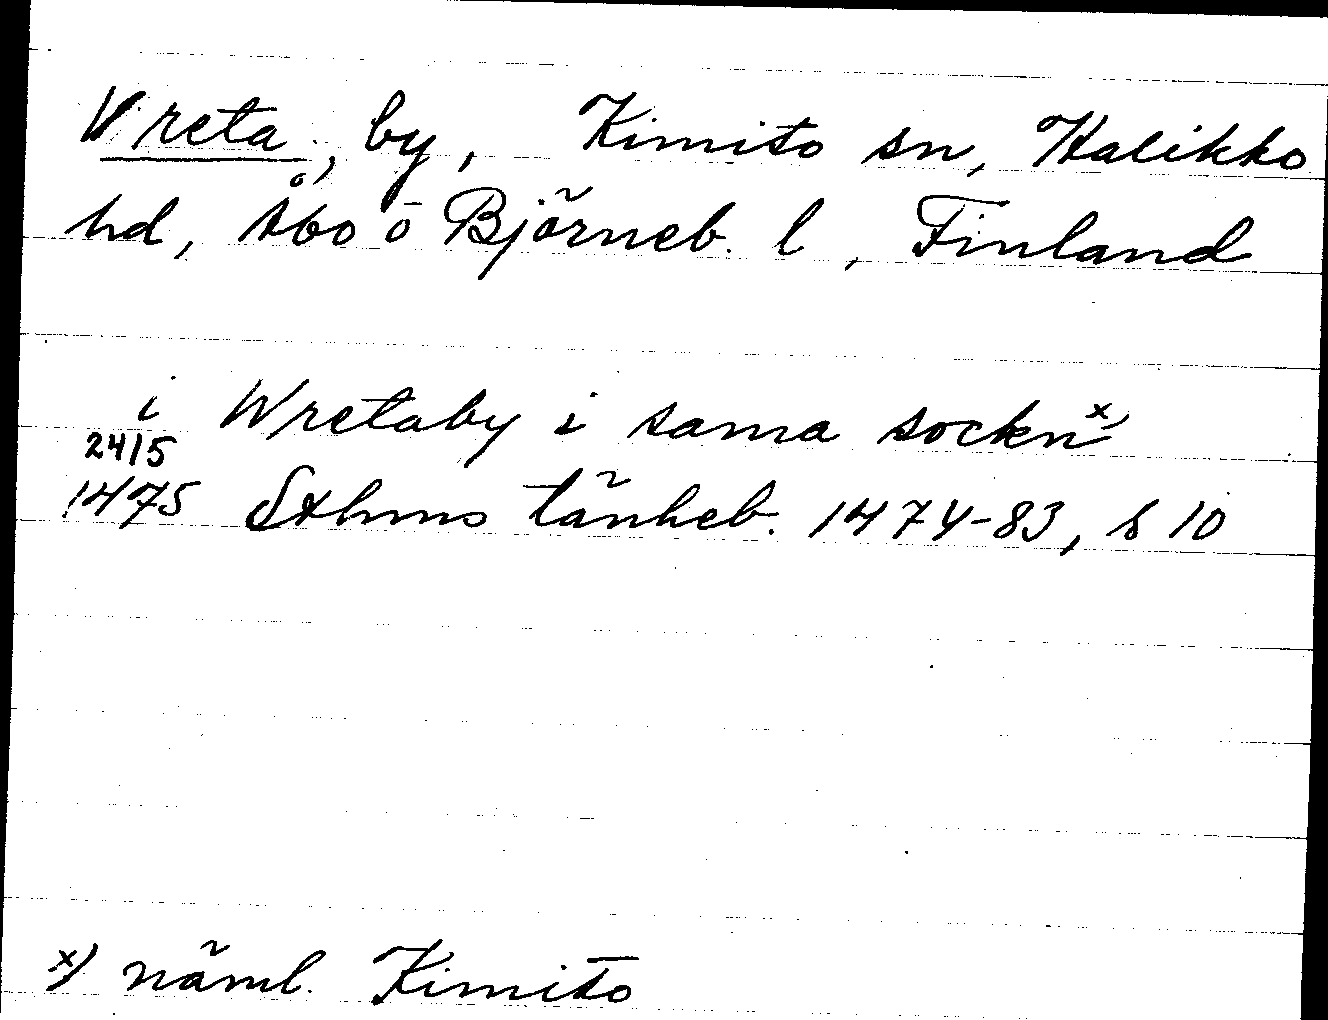 Vreta, by, Kimito sn, Halikko
hd, Åbo o Björneb. l, Finland
i Wretaby i sama sockn x)
24/5
1475 Sthms tänkeb. 1474-83, s 10
x) näml. Kimito